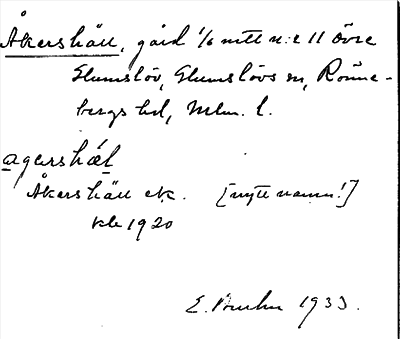 Åkershäll, gård 1/6 mtl n:o 11 Övre
Glumslöv, Glumslövs sn, Rönne-
bergs hd, Mlm. l.
agershäl
Åkershäll ek. [nytt namn!]
1920
E. 1933.